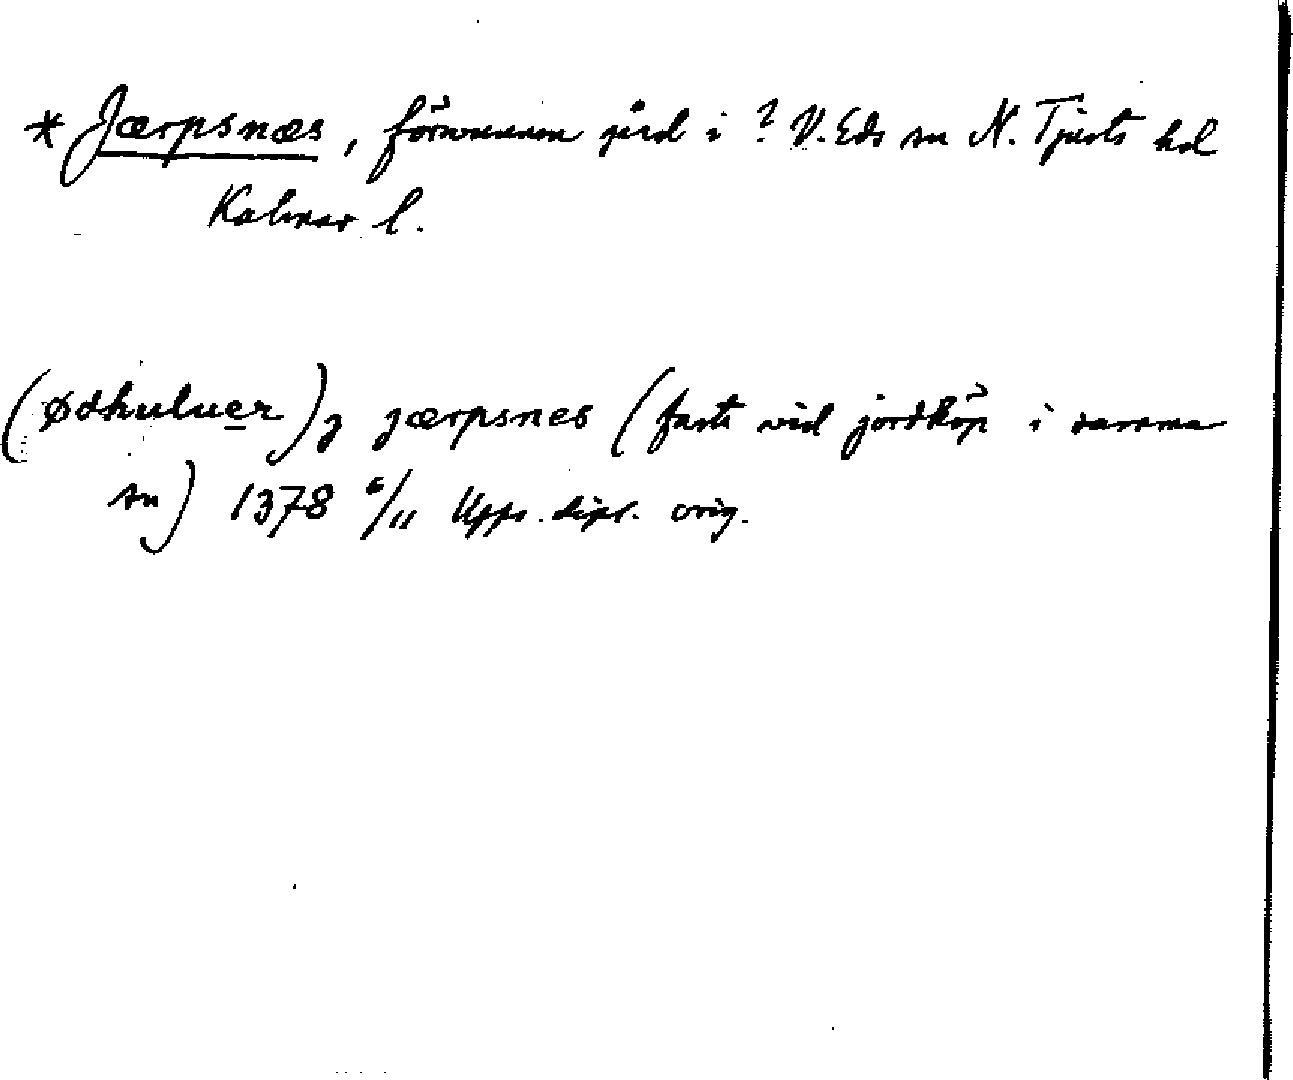 * Jærpsnæs, försvunnen gård i ? V. Eds sn N. Tjusts hd
Kalmar l.
(Ødhuluer) j jærpsnes (faste vid jordköp i samma
sn) 1378 6/11 Upps. dipl. orig.